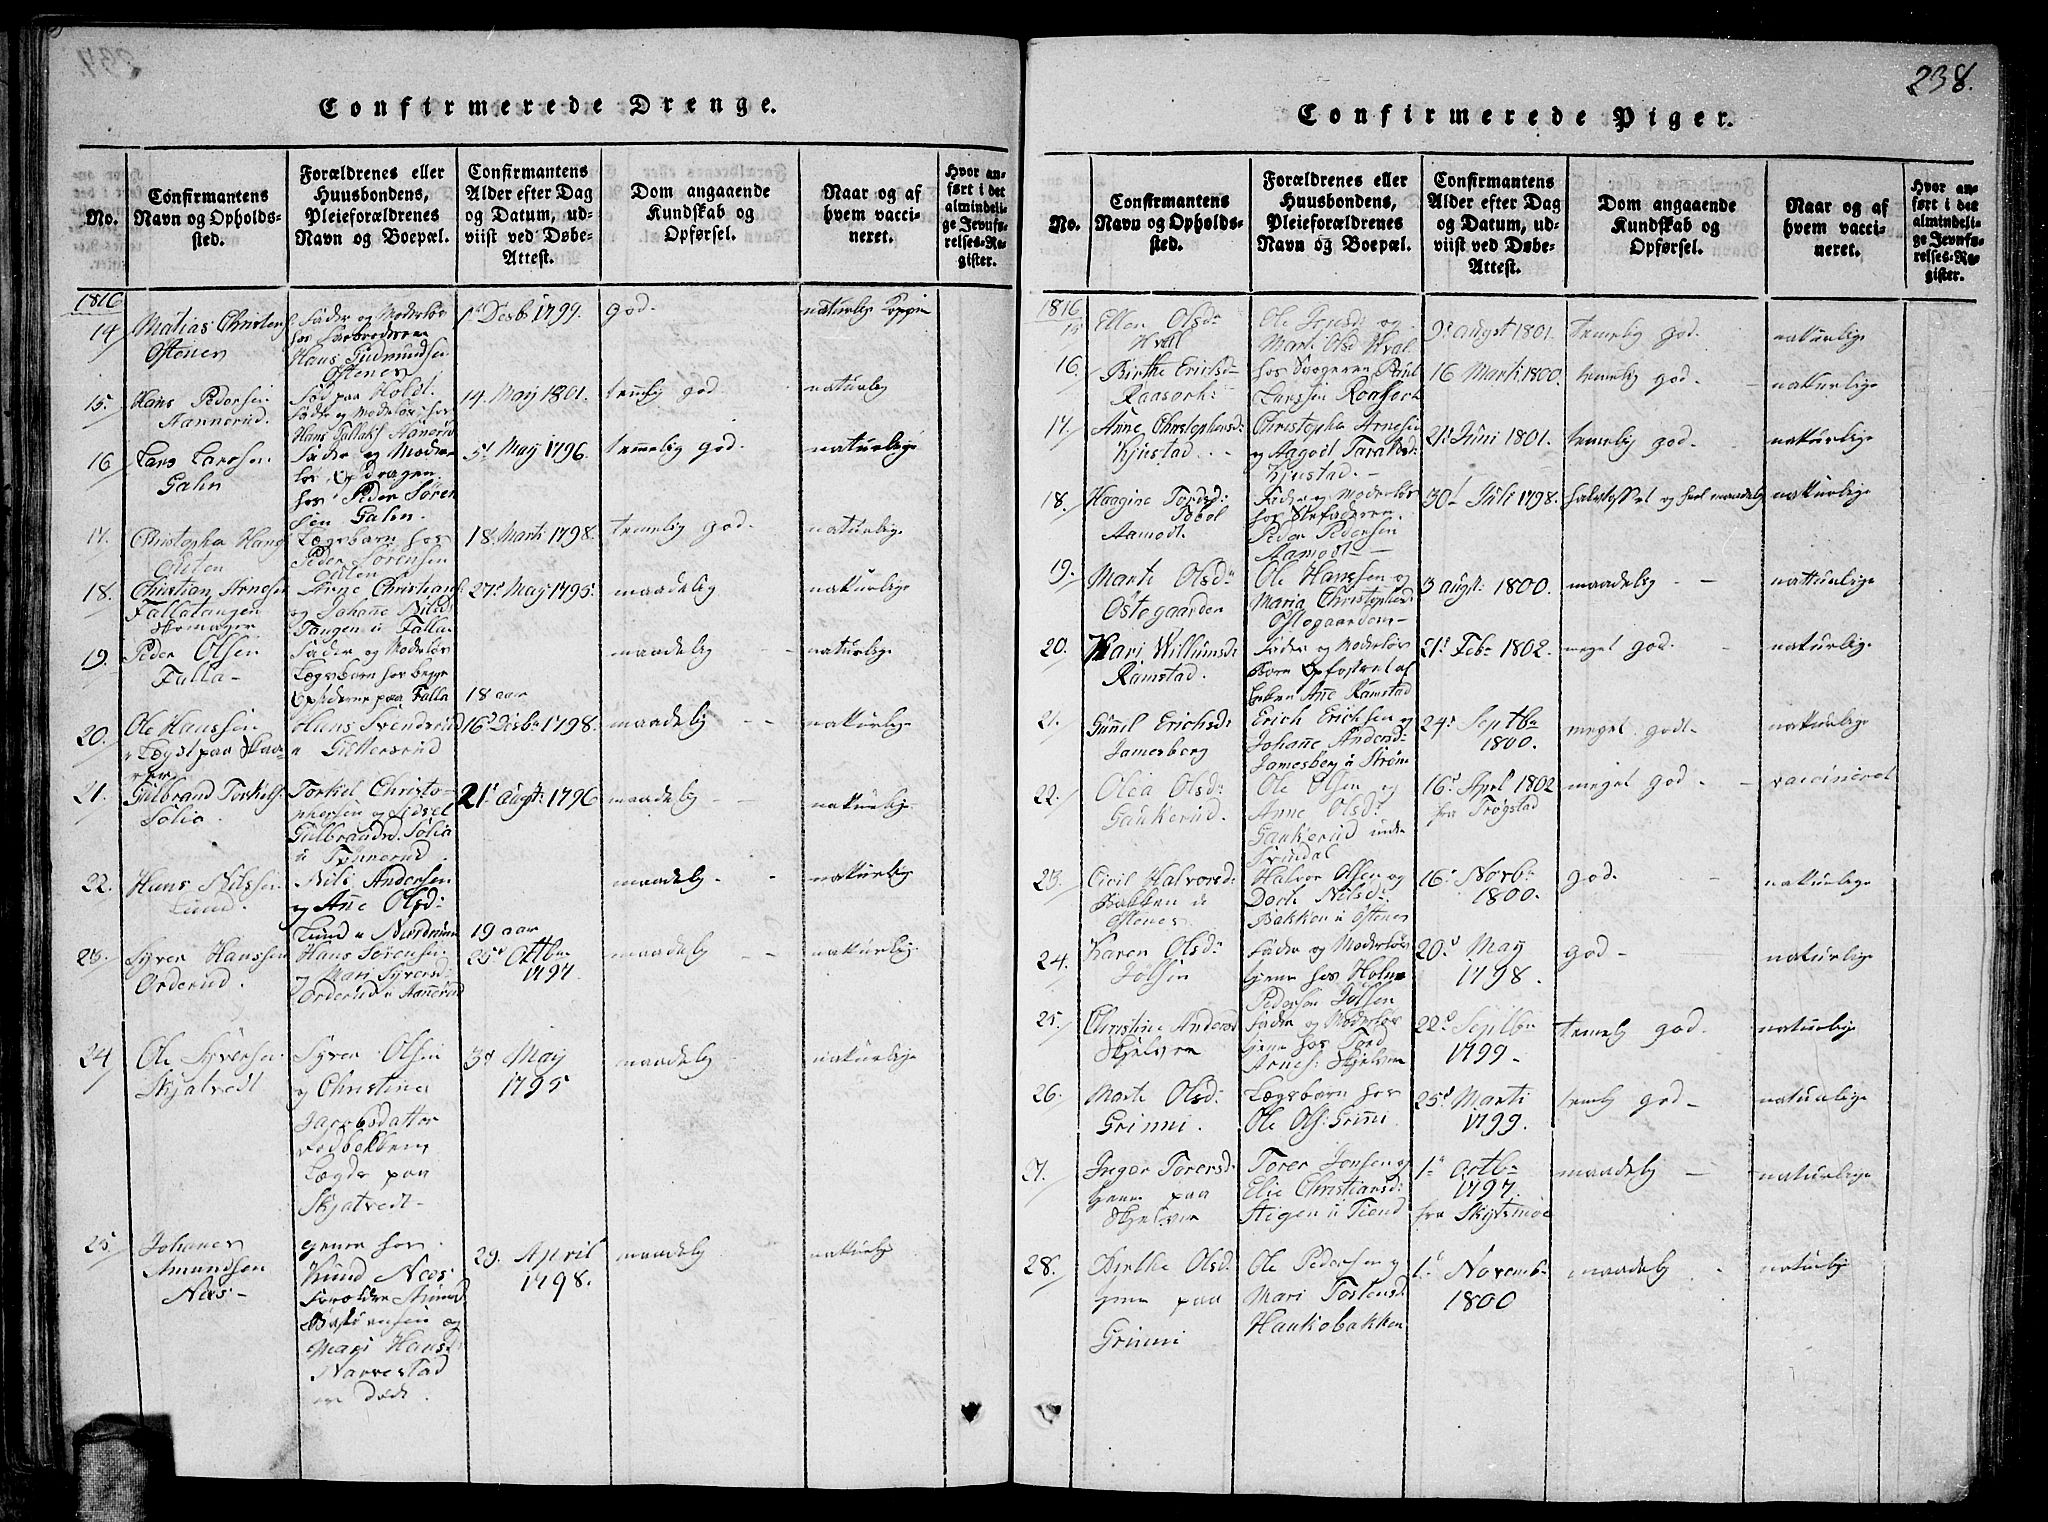 238.
Confirmerede Drenge.
No.
Confirmantens
Navn og Opholds-
sted.
Forældrenes eller
Huusbondens,
Pleieforældrenes
Navn og Boepæl.
Confirmantens
Alder efter Dag
og Datum, ud-
viist ved Døbe-
Attest.
Dom angaaende
Kundskab og
Opførsel.
Naar og af
hvem vacci-
neret.
Hvor an-
ført i det
almindeli-
ge Jevnfø-
relses-Re-
gister.
1816
14
Matias Christens
Ostenes
Fader og Moderløs
hos Farbroderen
Hans Gudmundsen
Ostenes
1d Desb 1799.
god.
naturlig Kopper
15.
Hans Pedersen
Hannerud.
Fød paa Holdt.
Fader og Moderløs, hos
Hans Hanerud
14 May 1801.
temlig god
naturlig
16
Lars Larssen
Galn
Fader og Moder-
løs Opdragen
hos Peder Søren
sen Galen.
5t May 1796.
temmelig god
naturlige
17.
Christopher Hans
Osten
Lægsbarn hos
Peder Sørensen
Osten
18. Marti 1798.
temelig god
naturlig
18.
Christian Arnesen
Fallatangen
Skomager
Arne Christians
og Johañe Nilsd:
Tangen u Falla
27d May 1795.
maadelig
naturlige
19.
Peder Olsen
Falla-
Fader og Moderløs
Lægsbarn hos begge
Opsiderne paa Falla
18 aar
maadelig
naturlige
20.
Ole Hanssen
Lægst paa Skaa-
rer
Hans Svendsrud
u Guttersrud
16d Desbr 1798.
maadelig
naturlige
21.
Gulbrand Torkels
Solia.
Torkel Christo-
phersen og Sidsel
Gulbrandsd. Solia
u Tønnerud
21d Augst: 1796
maadelig
naturlige
22.
Hans Nilssen
Lund.
Nils Andersen
og Añe Olsd:
Lund u Nordrum
19 aar
maadelig
naturlig
23.
Syver Hanssen
Orderud.
Hans Sørensen
og Mari Syversd:
Orderud u Hannerud
25d Octbr
1797.
maadelig
naturlig
24
Ole Syversen
Skjatvedt
Syver Olsen
og Christina
Jacobsdatter
Vedbakken
Lægde paa
Skjatvedt-
3d May
1795
maadelig
naturlige
25.
Johanes
Amundsen
Næs-
tjener hos
Knud Næs
Forældre Amund
og
Mari Hansd:
Narvestad
er døde.
29. April
1798.
maadelig
naturlig
Confirmerede Piger.
No.
Confirmantens
Navn og Opholds-
sted.
Forældrenes eller
Huusbondens,
Pleieforældrenes
Navn og Boepæl.
Confirmantens
Alder efter Dag
og Datum, ud-
viist ved Døbe-
Attest.
Dom angaaende
Kundskab og
Opførsel.
Naar og af
hvem vacci-
neret.
Hvor an-
ført i det
almindeli-
ge Jevnfø-
relses-Re-
gister.
1816
15
Ellen Olsdr
Hvall
Ole Jensen og
Marti Olsd Hval
9d augst 1801.
temelig god.
naturlige
16.
Birthe Ericsdr
Raasoch:
hos Svogeren Poul
Larssen Roasoch
16 Marti 1800.
temelig god
naturlige
17.
Anne Christophersd:
Kjustad
Christopher Arnesen
og Aagodt Taraldsd:
Kjustad.
21d Juni 1801.
temelig god
naturlige
18.
Haagine Tordsd:
Aamodt.
Fader og Moderløs
hos Stefaderen
Peder Pedersen
Aamodt
30d Juli 1798.
halvtosset og heel maadelig
naturlige
19.
Marti Olsdr
Østegaarden
Ole Hanssen og
Maria Christophersd:
Ostegaarden
3 augst: 1800.
maadelig
naturlige
20.
Kari Willumsd:
Ramstad.
Fader og Moderløs
Barn Opfostret af
Enken Añe Ramstad
21d Febr 1802.
meget god.
naturlige
21.
Gunil Erichsd:
Jamesberg
Erich Erichsen og
Johañe Andersd:
Jamesberg u Strøm
24d Septbr
1800.
meget godt
naturlige
22.
Olea Olsd:
Gaukerud.
Ole Olsen og
Anne Olsd:
Gaukerud under
Svindal
16d April 1802
fra Trøgstad
meget god
vaccineret
23.
Civil Halvorsd:
Bakken u
Ostenes
Halvor Olsen og
Dorte Nilsd:
Bakken u Ostenes
16d Novbr
1800.
god.
naturlige
24.
Karen Olsdr
Jølsen
Fader og Moderløs
tjener hos Holm
Pedersen Jølsen
20d May
1798.
god
naturlige
25.
Christine Andersd
Skjelven
Fader og Moderløs
tjener hos Tord
Arnes: Skjelven
22d Septbr
1799.
temelig god
naturlig
26.
Marte Olsd:
Grinni.
Lægsbarn hos
Ole Ols: Grini.
25d Marti
1799.
temelig god
naturlige
27.
Ingebor Torersd:
tjener paa
Skjelven
Torer Jensen og
Elie Christiansd:
Stigen u Tiend
1d Octbr
1797.
fra Skytsmoe
maadelig
naturlige
28.
Birthe Olsd:
tjener paa
Grinni
Ole Pedersen og
Mari Tostensd:
Haukebakken
1d Novemb
1800
maadelig
naturlig